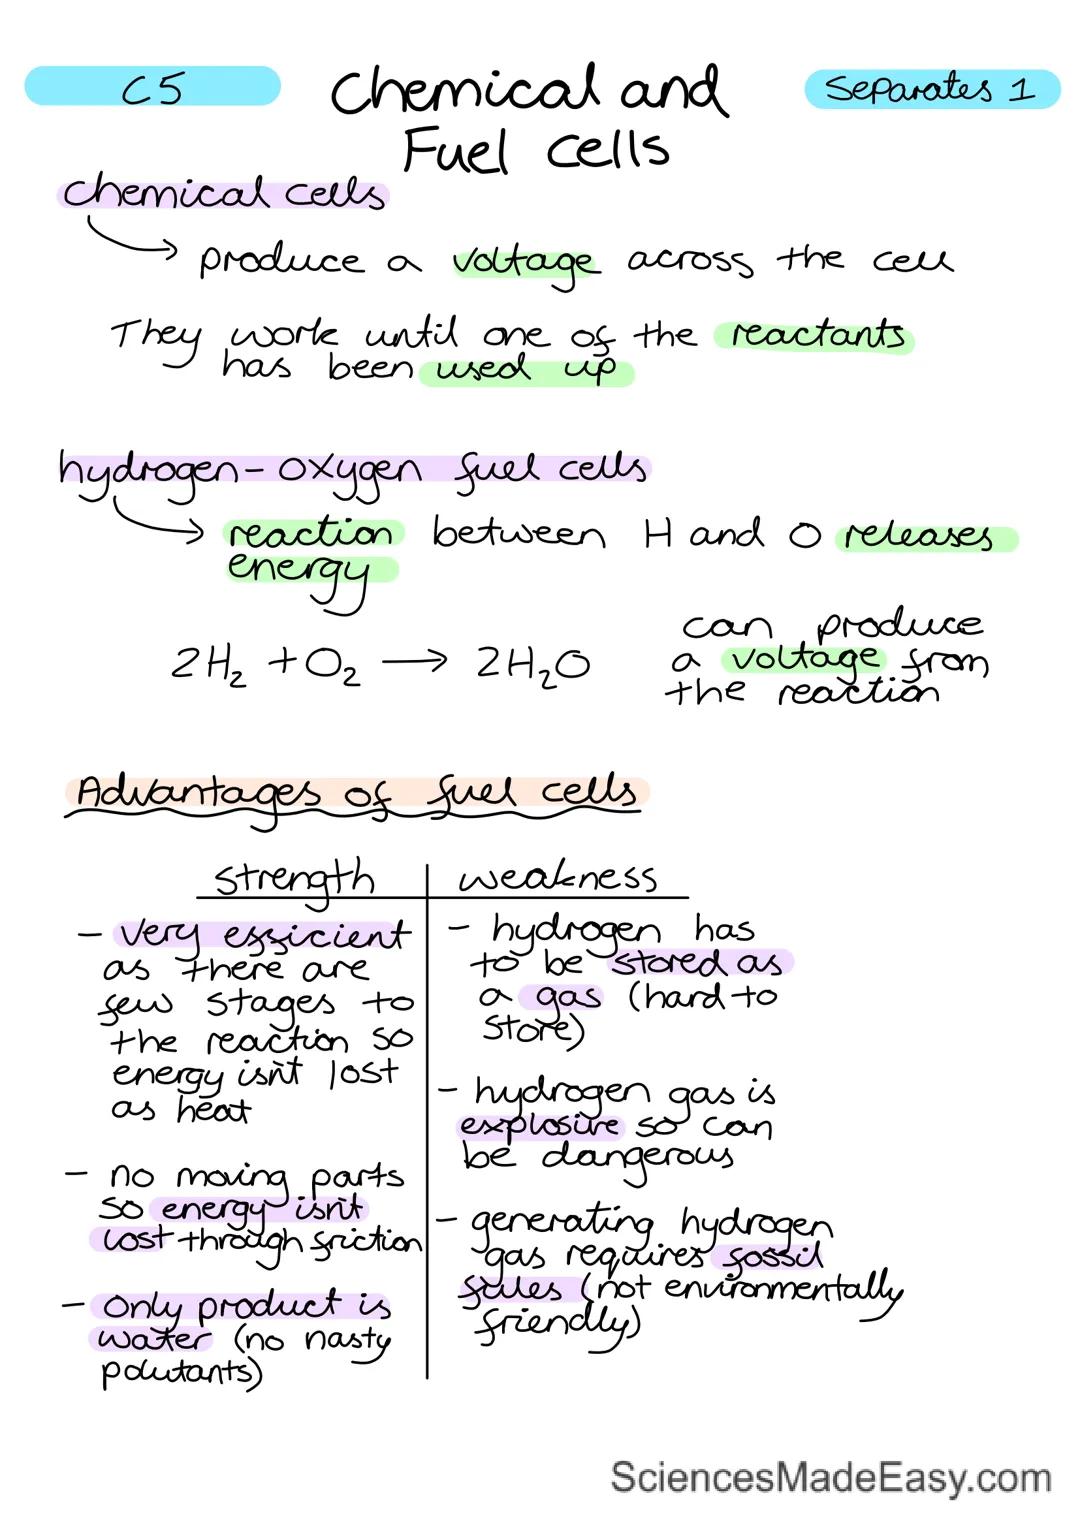 C5
Chemical and
Fuel cells
Separates 1
chemical cells
produce a voltage across the cell
They work until one of the reactants
has been used up
hydrogen-oxygen fuel cells
reaction between H and O releases
energy
2H₂ + O₂ → 2H₂O
can produce
a voltage from
the reaction
Advantages of fuel cells
strength
- very efficient
as there are
few stages to
the reaction so
energy isn't lost
as heat
- no moving parts
so energy isn't
lost through friction
- Only product is
water (no nasty
polutants)
weakness
- hydrogen has
to be stored as
a gas (hard to
store)
- hydrogen gas is
explosive so can
be dangerous
- generating hydrogen
gas requires fossil
fules (not environmentally
friendly)
SciencesMadeEasy.com